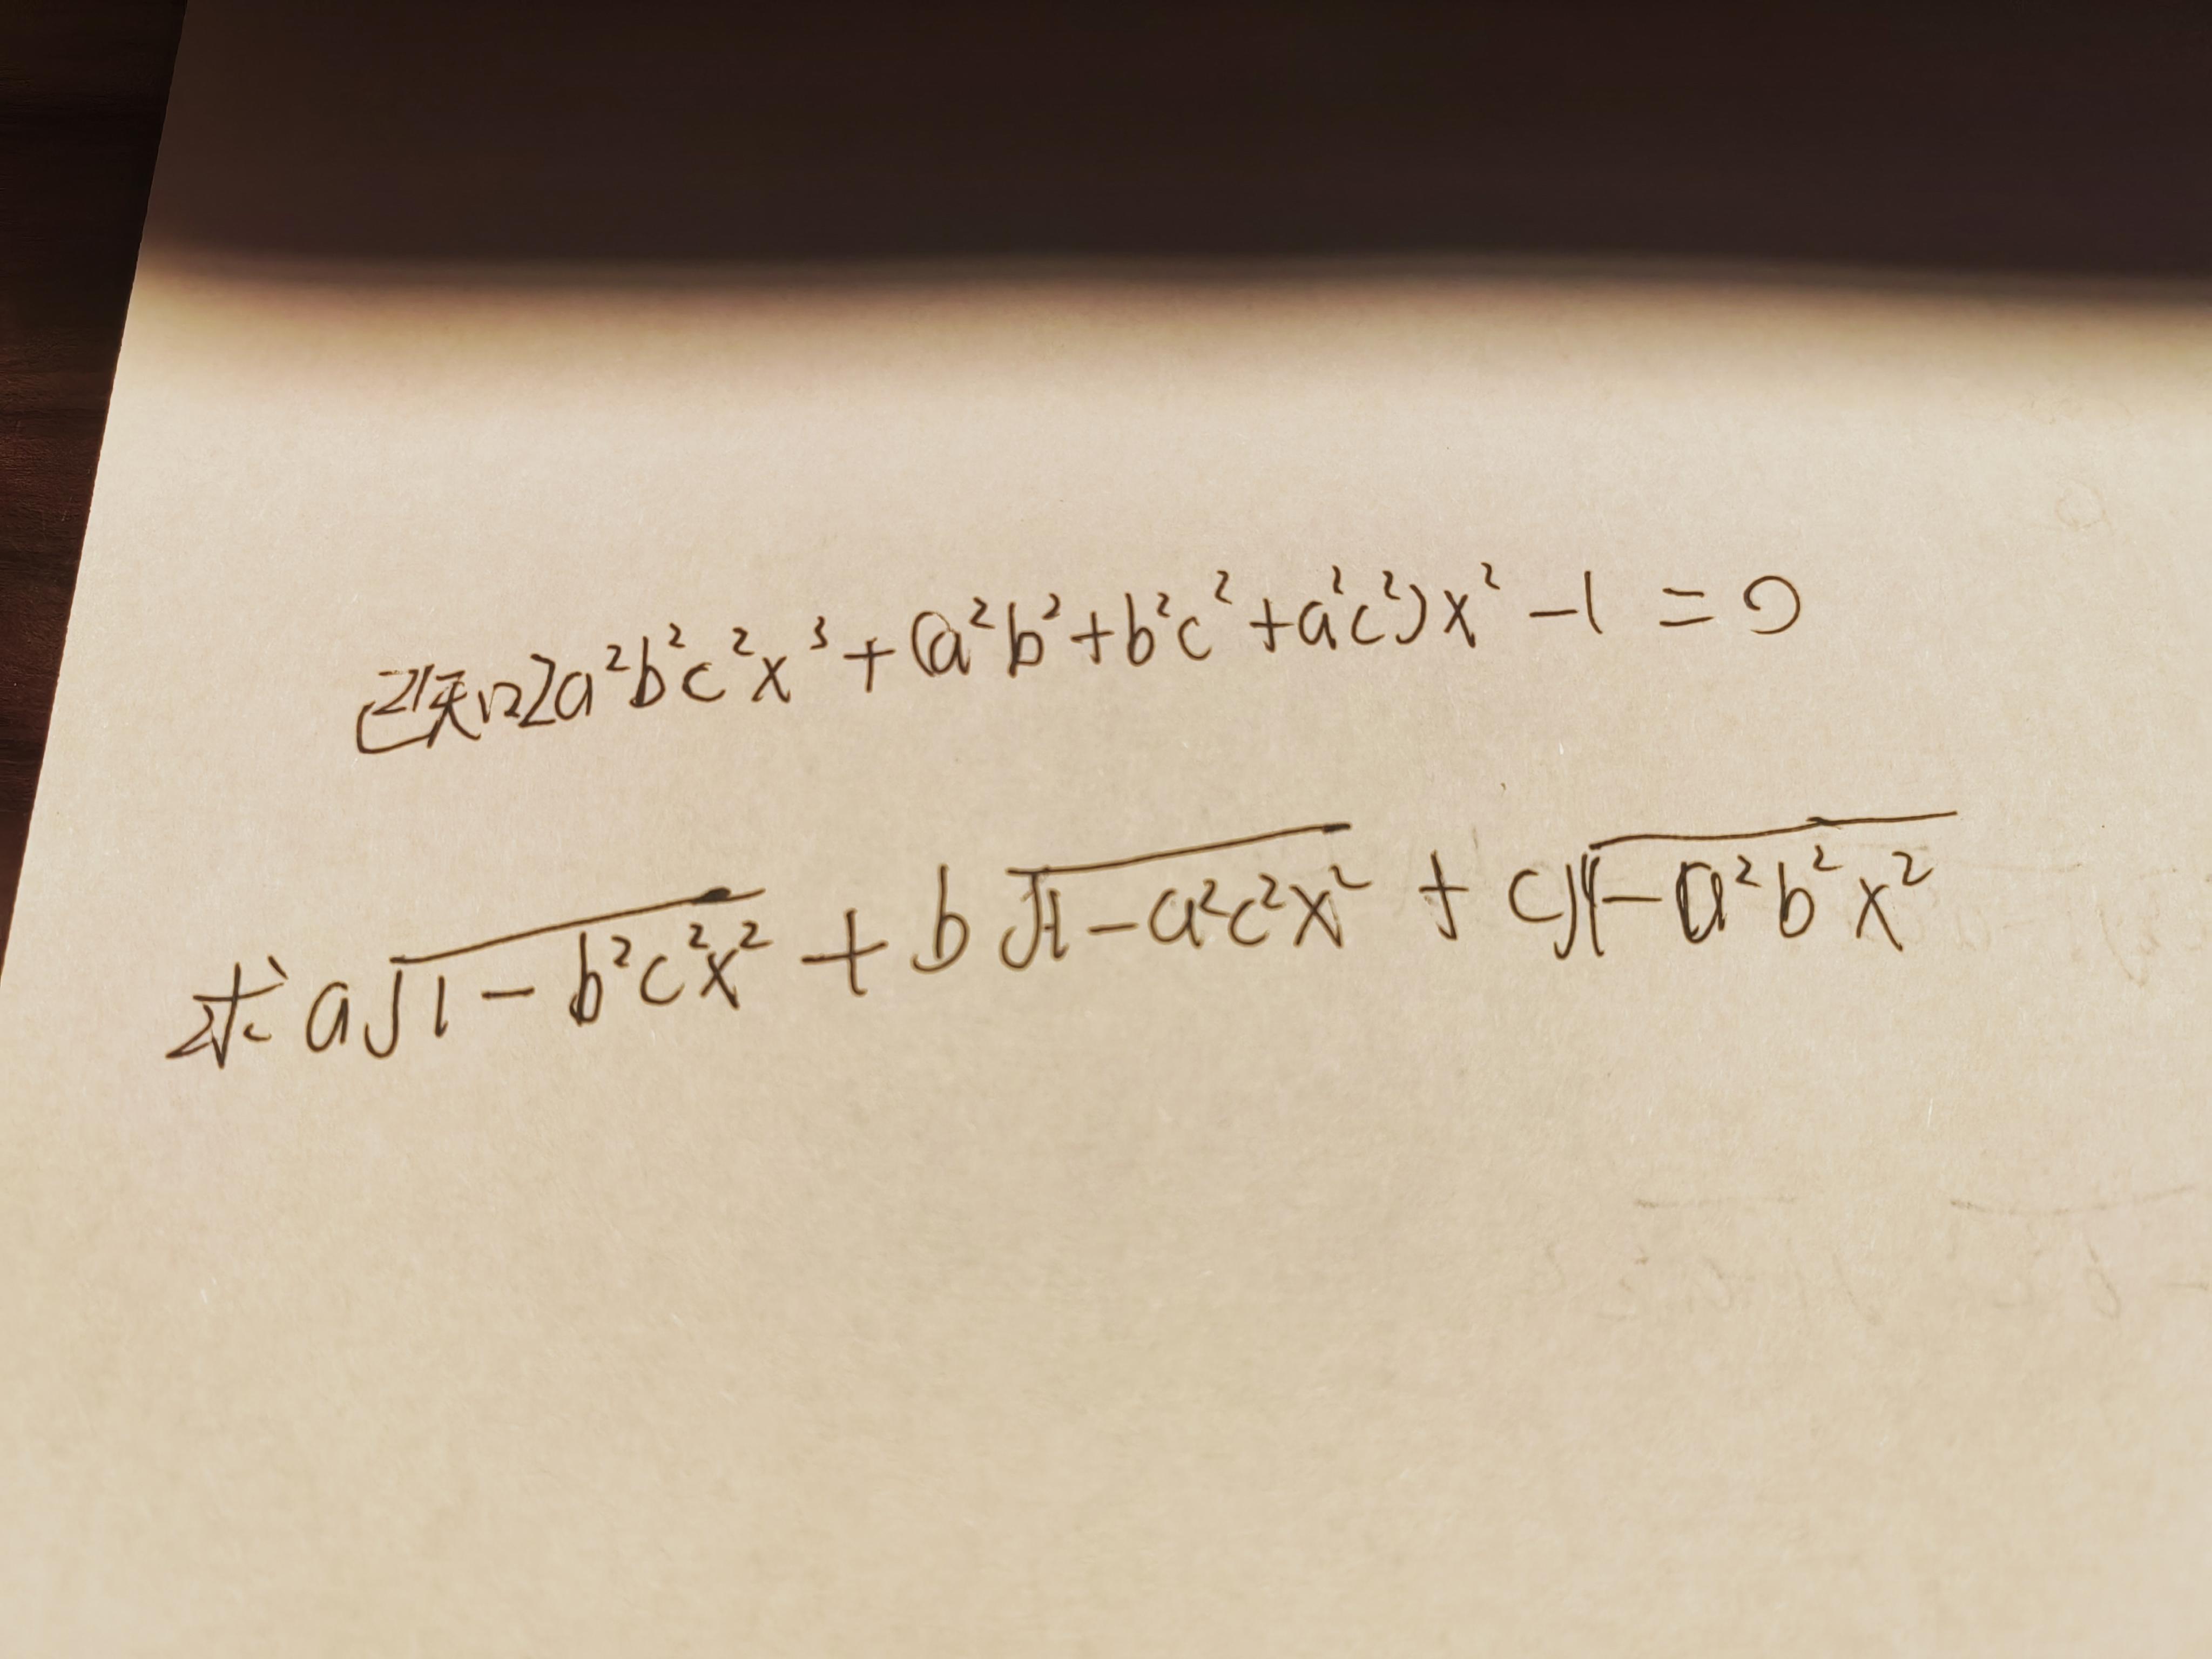 已知2a²b²c²x³+(a²b²+b²c²+a²c²)x²-1=0
求a√(1-b²c²x²)+b√(1-a²c²x²)+c√(1-a²b²x²)